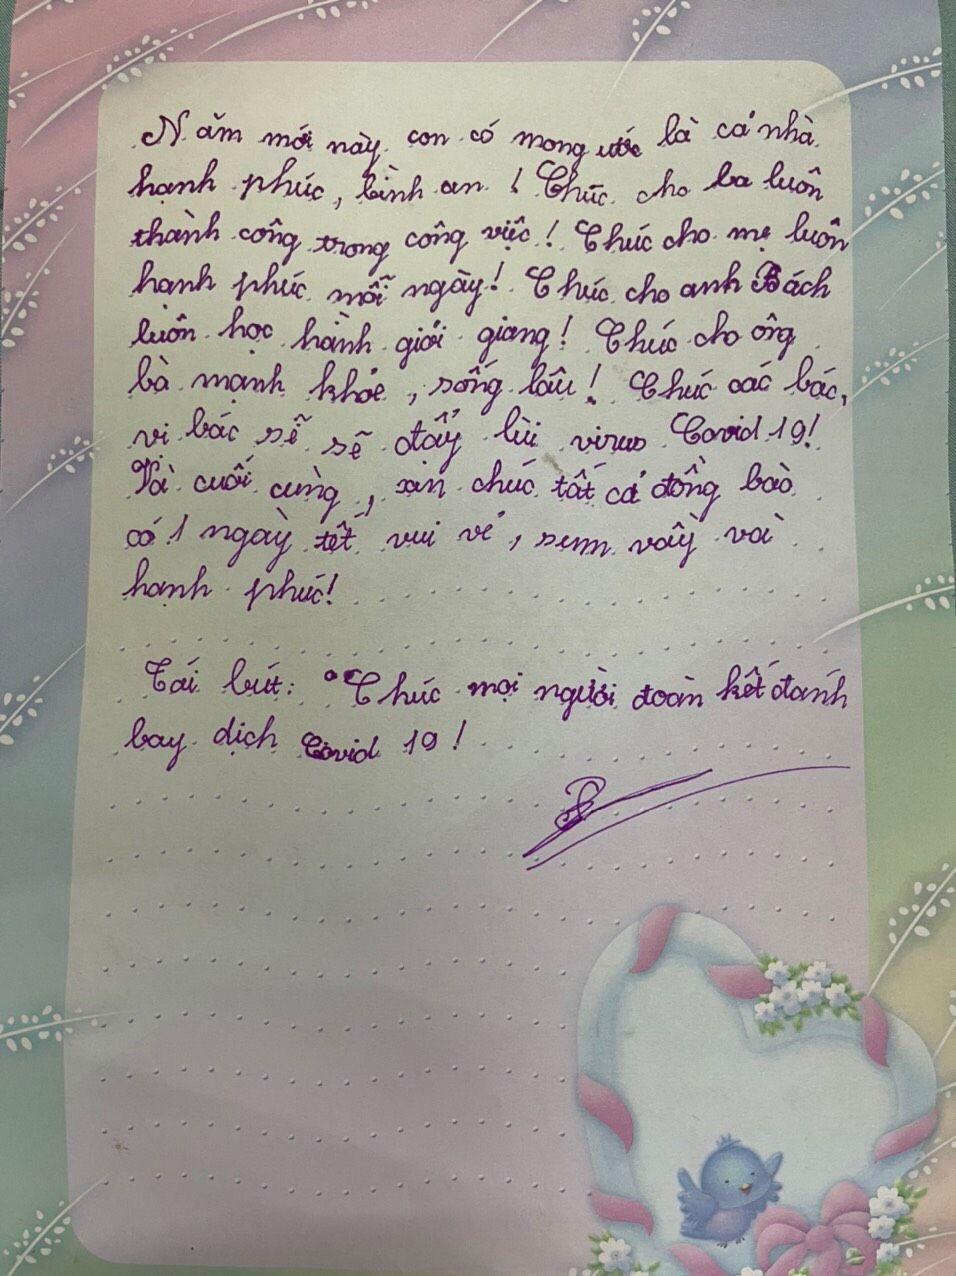 Năm mới này, con có mong ước là cả nhà
hạnh phúc, bình an! Chúc cho ba luôn
thành công trong công việc! Chúc cho mẹ luôn
hạnh phúc mỗi ngày! Chúc cho anh Bách
luôn học hành giỏi giang! Chúc cho ông
bà mạnh khỏe, sống lâu! Chúc các bác,
vị bác sĩ sẽ đẩy lùi virus Covid 19!
Và cuối cùng, xin chúc tất cả đồng bào
có 1 ngày tết vui vẻ, sum vầy và
hạnh phúc!
Tái bút: "Chúc mọi người đoàn kết đánh
bay dịch Covid 19!